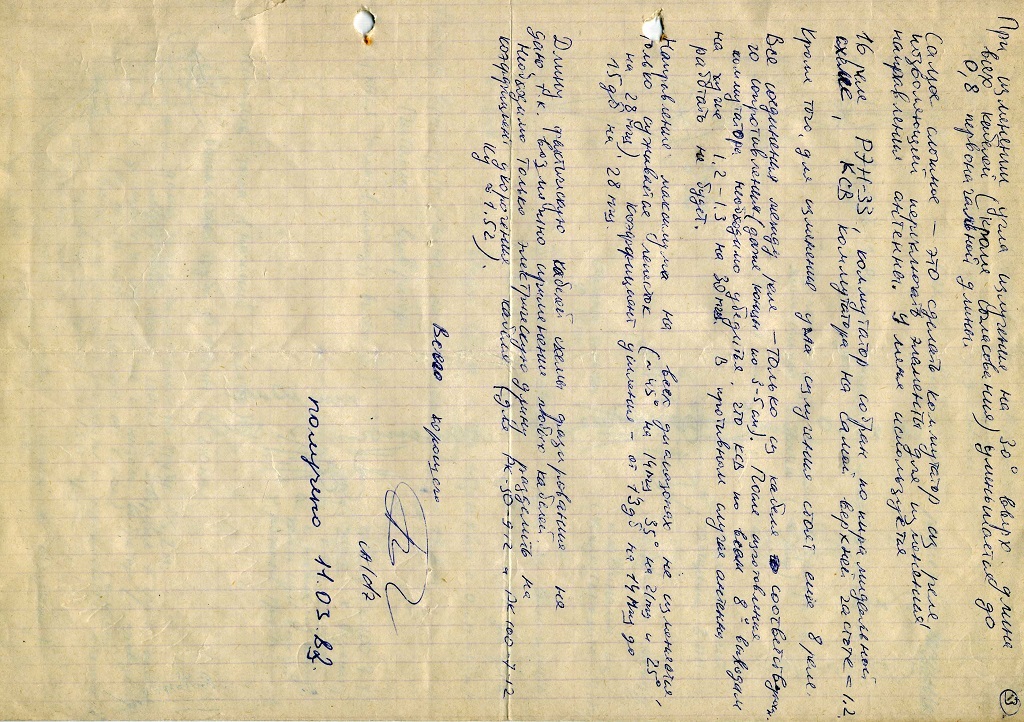 При изменении угла излучения на 30° вверх длина
всех кабелей (кроме согласования) уменьшается до
0,8 первоначальной длины.
Самое сложное – это сделать коммутатор из реле,
позволяющий переключать элементы для изменения
направления антенны. У меня используется
16 реле РЭН-33, коммутатор собран по пирамидальной
схеме, КСВ коммутатора на самой верхней частоте = 1.2.
Кроме того, для изменения угла излучения стоят ещё 8 реле.
Все соединения между реле – только из кабеля соответствую-
го сопротивления (даже концы по 3-5 см). После изготовления
коммутатора необходимо убедиться, что КСВ по всем 8й выходам
не хуже 1,2-1,3 на 30 мгц. В противном случае антенна
работать не будет.
Направление максимума на всех диапазонах не изменяется,
только суживается лепесток (~45° на 14 мгц 35° на 21 мгц и 25°
на 28 мгц), коэффициент усиления – от 13 дб на 14 мгц до
15 дб на 28 мгц.
Длину фактическую кабелей схемы фазирования не
даю, т.к. возможно применение любых кабелей
необходимо только электрическую длину разделить на
коэффициент укорочения кабеля (для РК-50-7-12 и РК 100-7-12
Ку = 1.52).
Всего хорошего
получено 11.03.83.